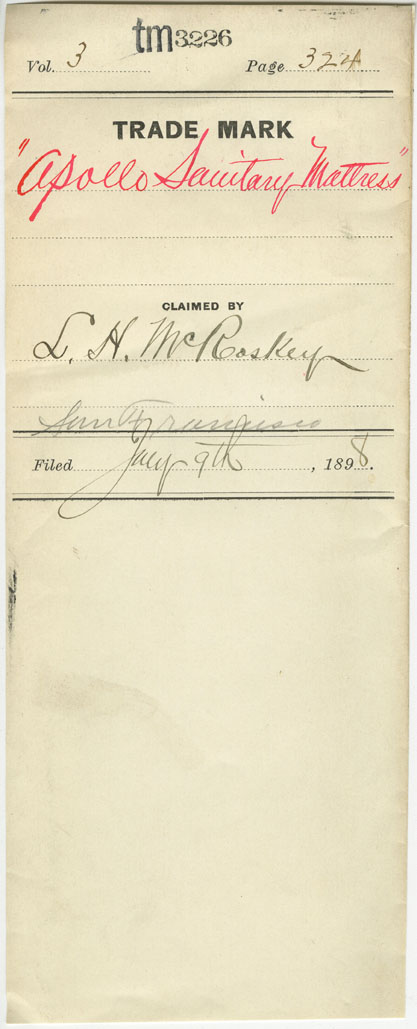 tm3226
Vol. 3 Page 324
TRADE MARK
"Apollo Sanitary Mattress"
CLAIMED BY
L. H. McRoskey
San Francisco
Filed July 9th, 1898.